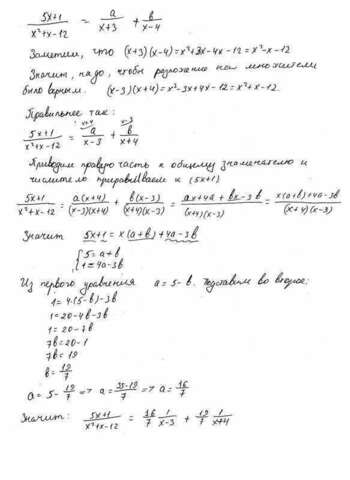 (5x+1)/(x²+x-12) = a/(x+3) + b/(x-4)
Заметим, что (x+3)(x-4)=x²+3x-4x-12=x²-x-12
Значит, надо, чтобы разложение на множители
было верным. (x-3)(x+4)=x²-3x+4x-12=x²+x-12.
Правильнее так:
x+4 x-3
(5x+1)/(x²+x-12) = a/(x-3) + b/(x+4)
Приводим правую часть к общему знаменателю и
числитель приравниваем к (5x+1)
(5x+1)/(x²+x-12) = a(x+4)/((x-3)(x+4)) + b(x-3)/((x+4)(x-3)) = (ax+4a+bx-3b)/((x+4)(x-3)) = (x(a+b)+4a-3b)/((x+4)(x-3))
Значит 5x+1=x(a+b)+4a-3b
{5=a+b
1=4a-3b
Из первого уравнения a=5-b. Подставим во второе:
1=4·(5-b)-3b
1=20-4b-3b
1=20-7b
7b=20-1
7b=19
b=19/7
a=5-19/7 => a=(35-19)/7 => a=16/7
Значит: (5x+1)/(x²+x-12) = 16/7 1/(x-3) + 19/7 1/(x+4)